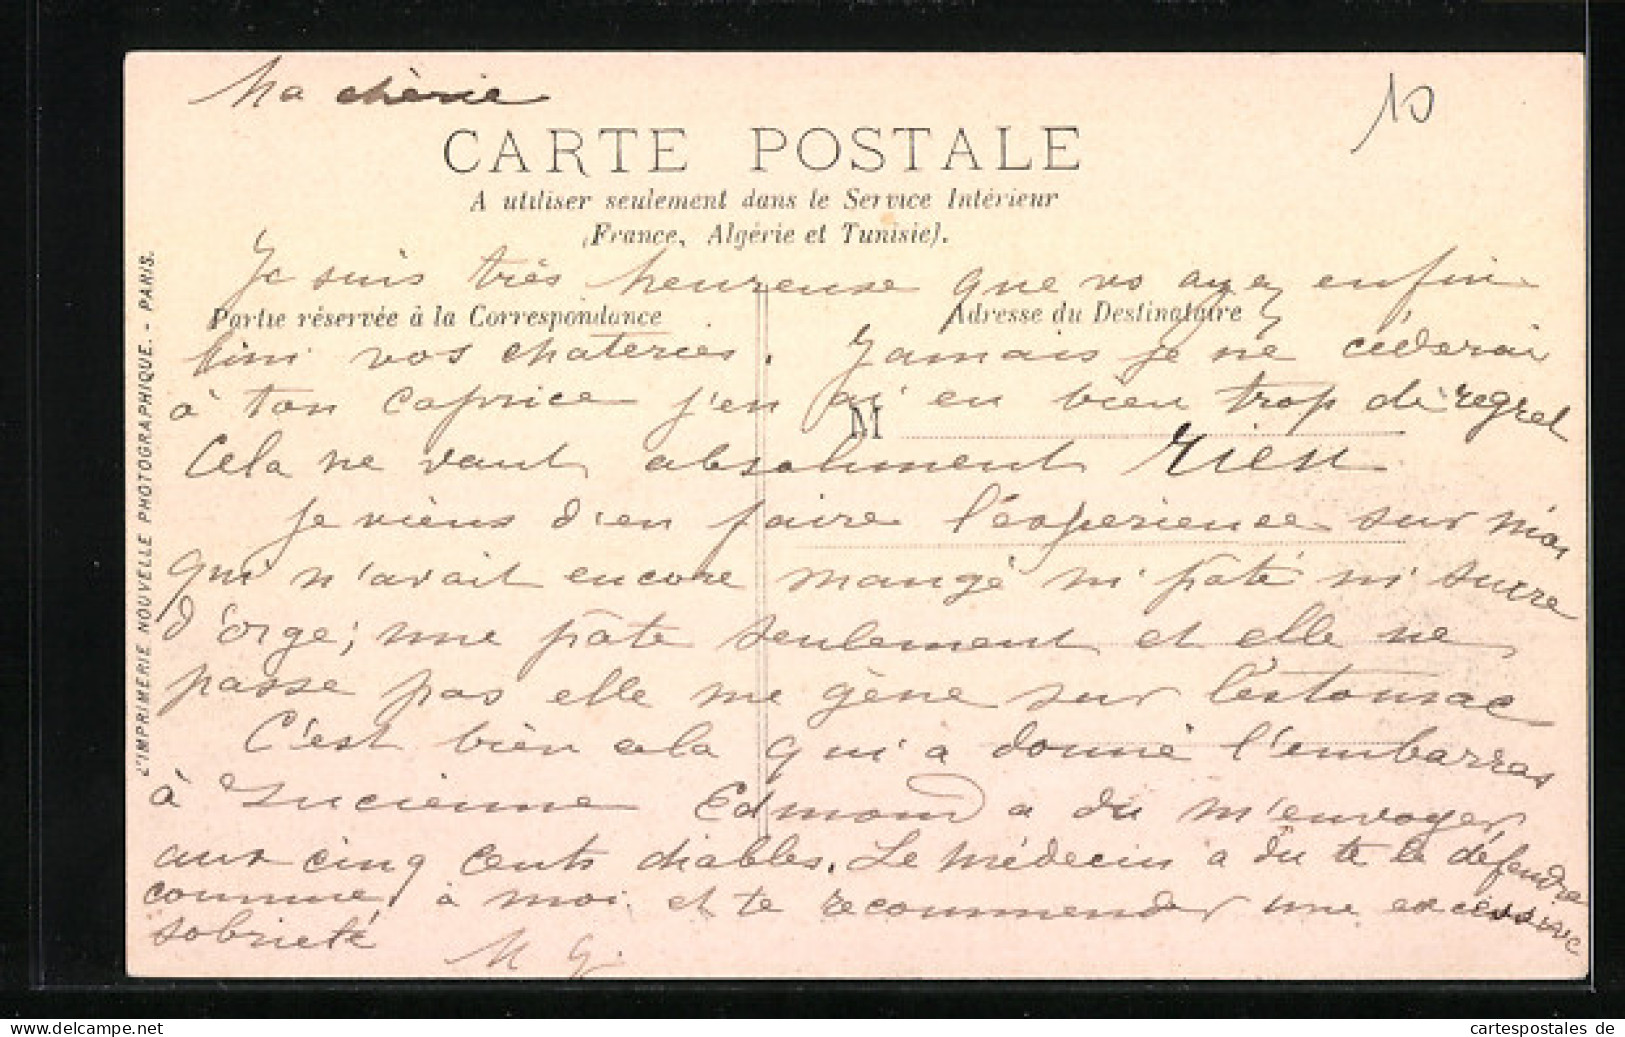 Ma chèrie
10
CARTE POSTALE
A utiliser seulement dans le Service Intérieur
(France, Algérie et Tunisie).
Je suis très heureuse que vs ayez enfin
Partie réservée à la Correspondance
Adresse du Destinataire
fini vos chateries. Jamais je ne cèderai
à ton caprice j'en ai eu bien trop de regret
M
Cela ne vaut absolument rien
Je viens d'en faire l'éxperience sur moi
qui n'avait encore mangé ni pâté ni sucre
d'orge; une pâte seulement et elle ne
passe pas elle me gène sur l'estomac
C'est bien cela qui a donné l'embarras
à Lucienne Edmond a du m'envoyer
aux cinq cents diables. Le Médecin a du te le défendre
comme à moi et te recommender une excessive
sobrieté
M G.
L'IMPRIMERIE NOUVELLE PHOTOGRAPHIQUE. - PARIS.
cartespostales de